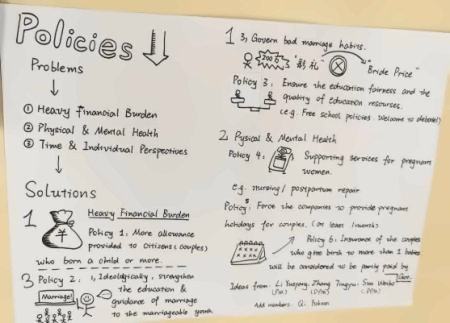 Policies
Problems
① Heavy Financial Burden
② Physical & Mental Health
③ Time & Individual Perspectives
Solutions
1 Heavy Financial Burden
¥
Policy 1. More allowance
provided to Citizens (couples)
who born a child or more.
3 Policy 2: 1, Ideologically, strengthen
the education &
guidance of marriage
to the marriageable youth
Marriage!
1 3, Govern bad marriage habits.
"彩礼" "Bride Price"
Policy 3. Ensure the education fairness and the
quality of education resources.
(e.g. Free school policies. Welcome to debate!)
2 Pysical & Mental Health
Policy 4: Supporting services for pregnant
women.
e.g. nursing/ postpartum repair
Policy 5 Force the companies to provide pregnant
holidays for couples. (at least 1 month)
Policy 6. Insurance of the couples
who give birth to more than 1 babies
will be considered to be partly paid by
Ideas from. Li Yueyang. Zhang Tingyu.
Add numbers.